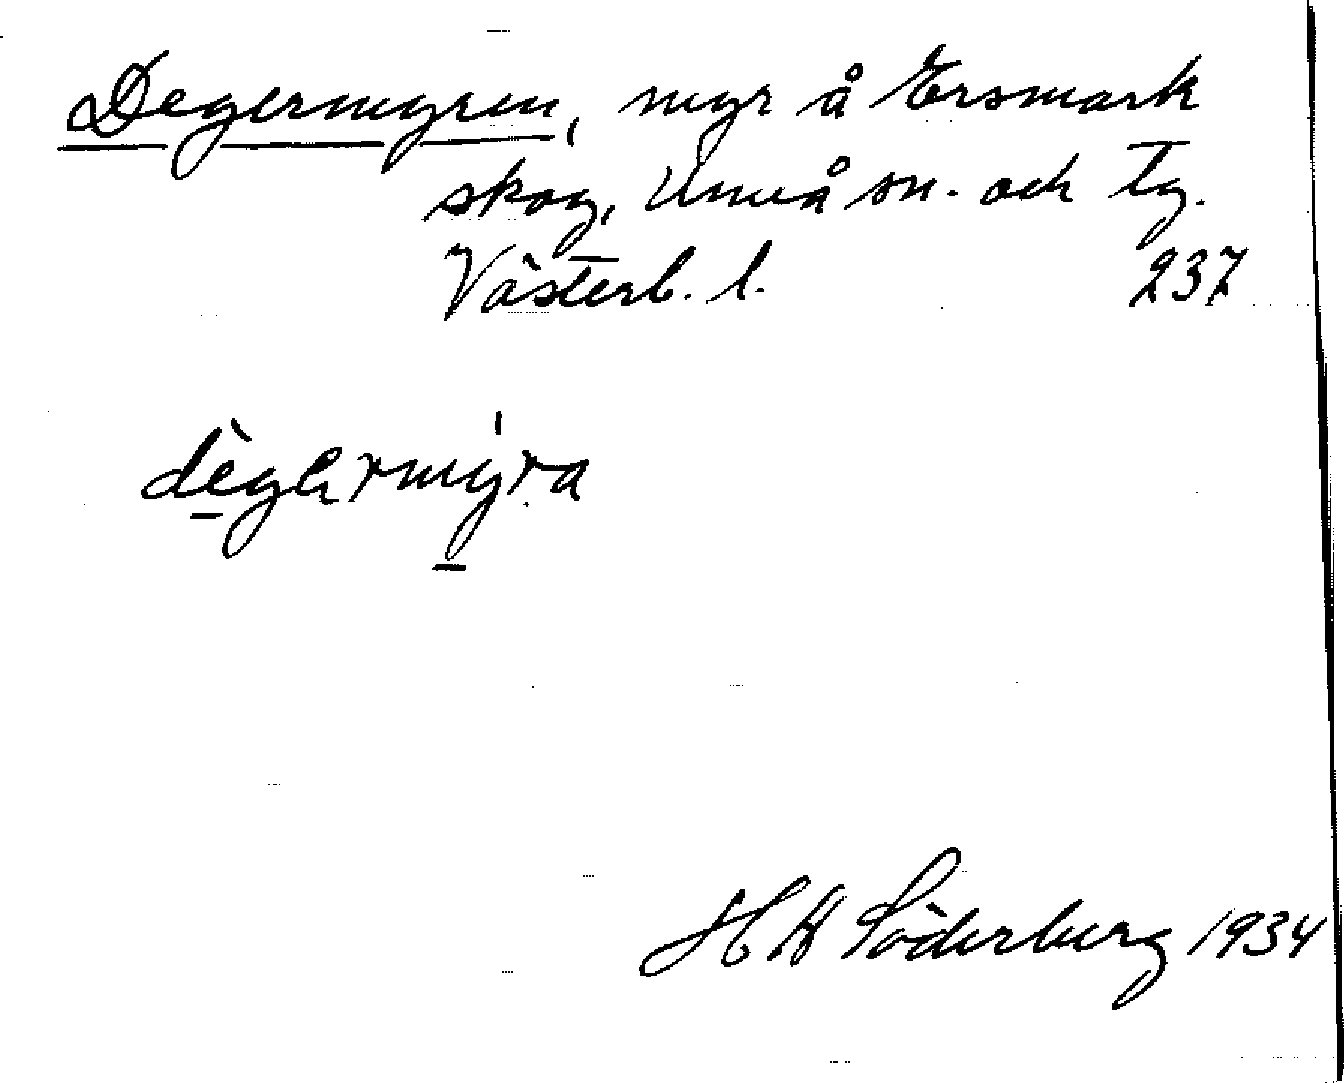 Degermyren, myr å Ersmark
skog, Umeå sn. och tg.
Västerb. l. 237
dègermy̍ra
H W Söderberg 1934